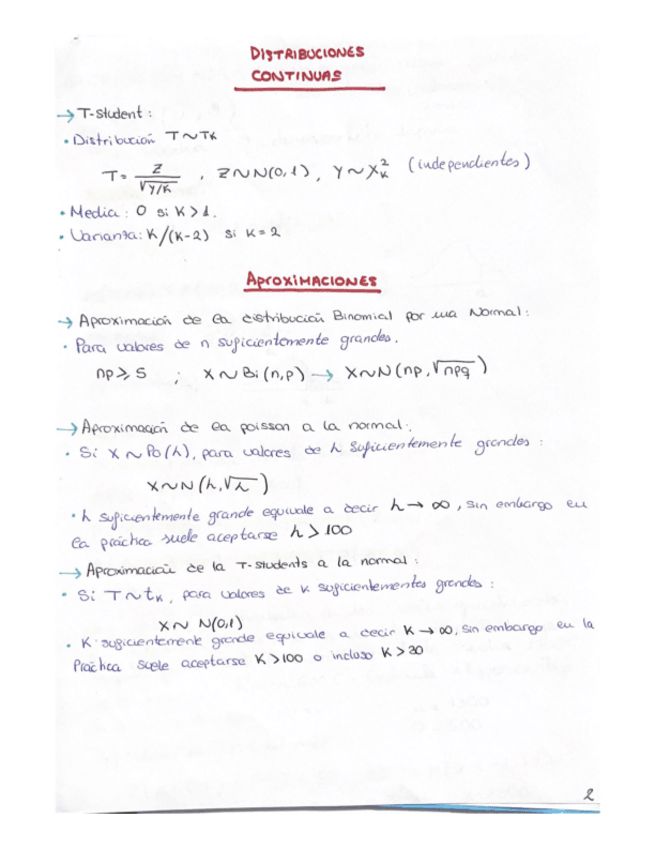 DISTRIBUCIONES
CONTINUAS
→ T-student:
• Distribución T~Tk
T = Z/√(Y/K) , Z~N(0,1), Y~X²_K (independientes)
• Media: 0 si K>1.
• Varianza: K/(K-2) si K=2
APROXIMACIONES
→ Aproximación de la distribución Binomial por una Normal:
• Para valores de n suficientemente grandes.
np⩾5 ; X~Bi(n,p) → X~N(np,√npq)
→ Aproximación de la poisson a la normal:
• Si X~Po(λ), para valores de λ suficientemente grandes:
X~N(λ,√λ)
• λ suficientemente grande equivale a decir λ→∞, sin embargo en
la práctica suele aceptarse λ>100
→ Aproximación de la T-students a la normal:
• Si T~tK, para valores de K suficientementes grandes:
X~ N(0,1)
• K suficientemente grande equivale a decir K→∞, sin embargo en la
Práctica suele aceptarse K>100 o incluso K>30
2